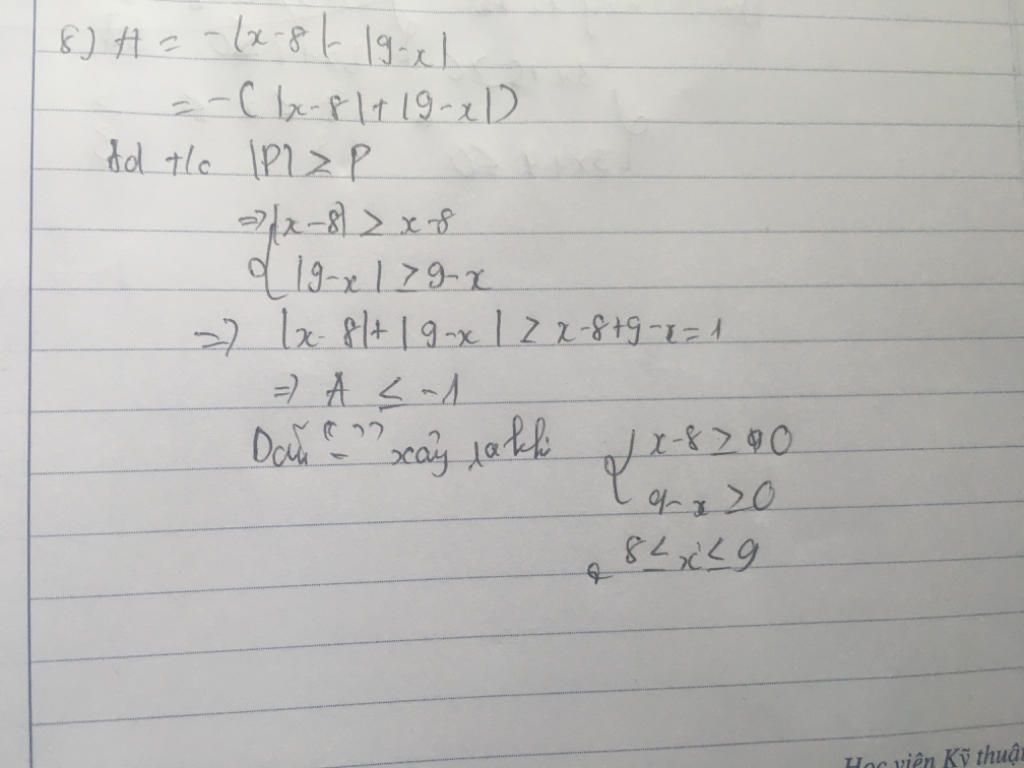 8) A = -|x-8| - |9-x|
= -( |x-8| + |9-x| )
Ad t/c |P| ≥ P
=> |x-8| ≥ x-8
|9-x| ≥ 9-x
=> |x-8| + |9-x| ≥ x-8+9-x = 1
=> A ≤ -1
Dấu "=" xảy ra khi { x-8 ≥ 0
9-x ≥ 0
8 ≤ x ≤ 9
Học viện Kỹ thuật